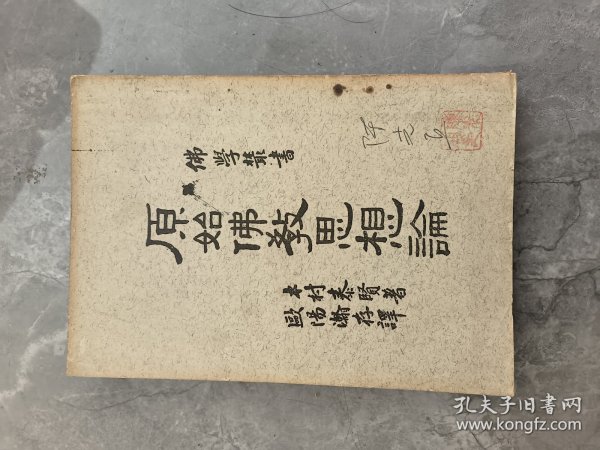 佛學叢書
原始佛教思想論
木村泰賢著
歐陽瀚存譯
孔夫子旧书网
www.kongfz.com